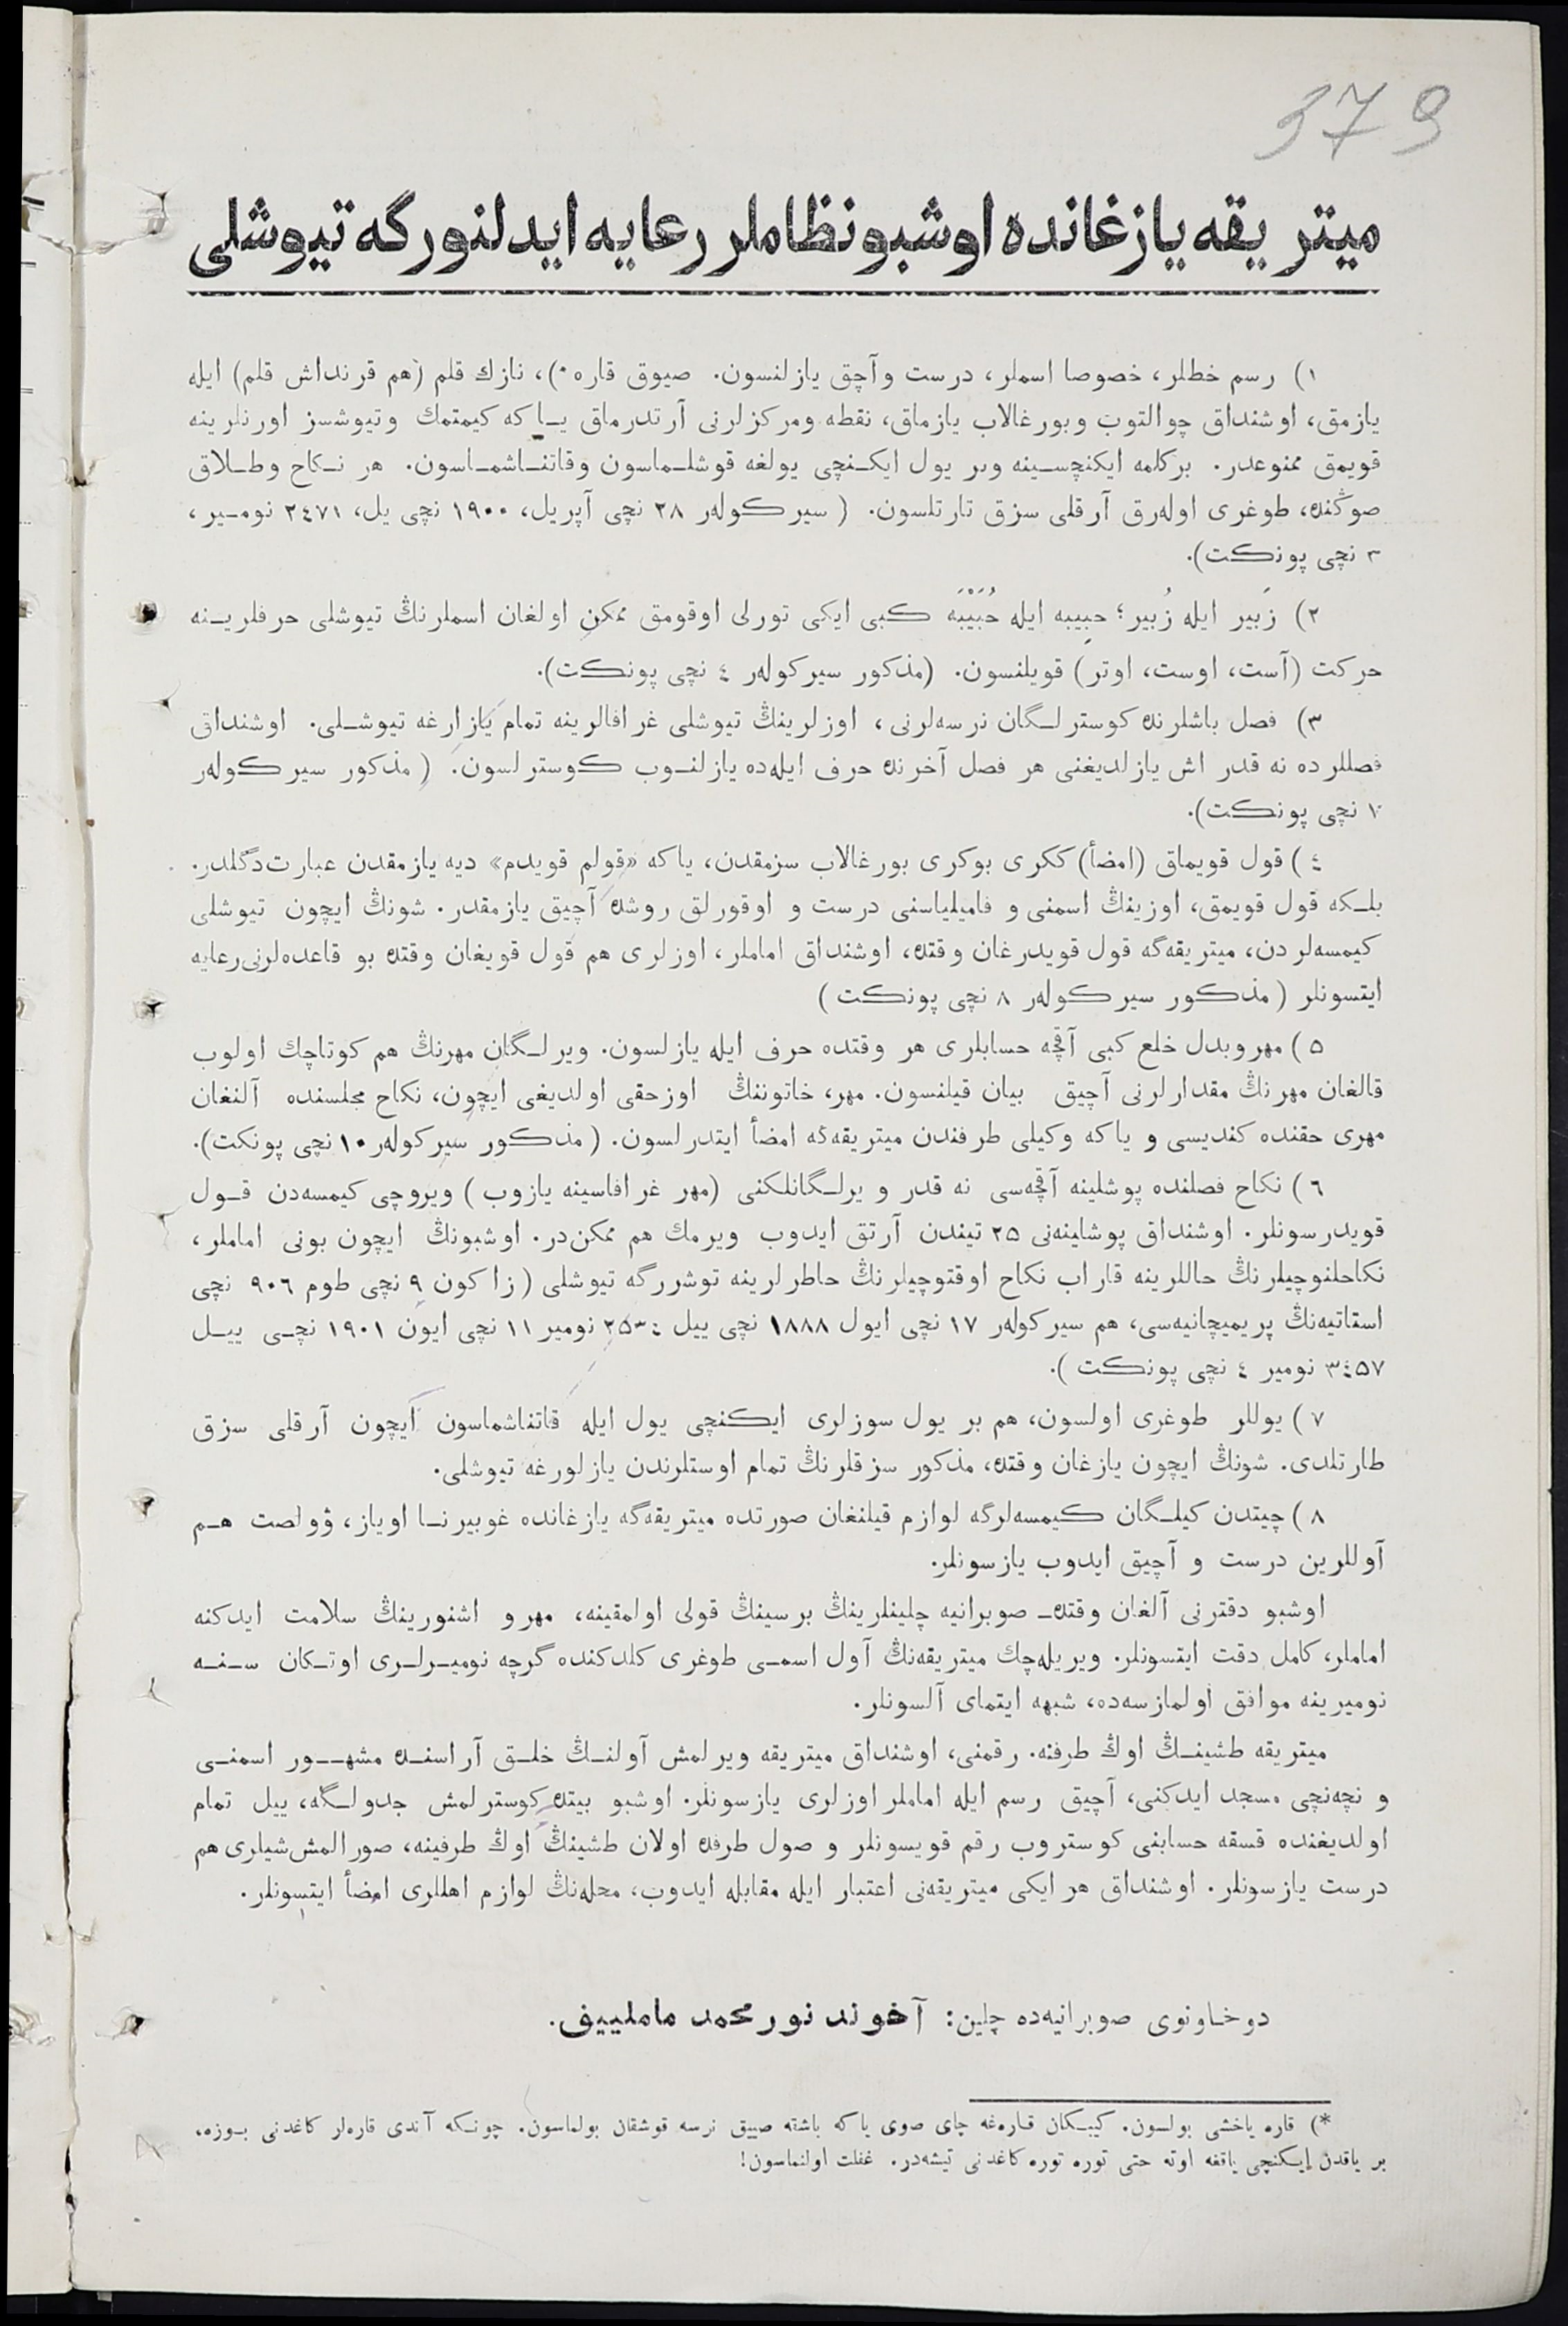 379
ميتريقه يازغانده اوشبو نظاملر رعايه ايدلنورگه تيوشلى
١) رسم خطلر، خصوصا اسملر، درست وآچق يازلنسون. صيوق قاره*)، نازك قلم (هم قرنداش قلم) ايله
يازمق، اوشنداق چوالتوب وبورغالاب يازماق، نقطه ومركزلرنى آرتدرماق يـا كه كيمتمك وتيوشسز اورنلرينه
قويمق ممنوعدر. بركلمه ايكنچسـينه وبر يول ايكـنچى يولغه قوشلـماسون وقاتنـاشمـاسون. هر نـكاح وطـلاق
صوڭنده، طوغرى اولهرق آرقلى سزق تارتلسون. (سيركولهر ٢٨ نچى آپريل، ١٩٠٠ نچى يل، ٢٤٧١ نومـير،
٣ نچى پونكت).
٢) زَبير ايله زُبير؛ حبِيبه ايله حُبَيْبَه كبى ايكى تورلى اوقومق ممكن اولغان اسملرنڭ تيوشلى حرفلريـنه
حركت (آست، اوست، اوتر) قويلنسون. (مذكور سيركولهر ٤ نچى پونكت).
٣) فصل باشلرنده كوسترلـگان نرسهلرنى، اوزلرينڭ تيوشلى غرافالرينه تمام يازارغه تيوشـلى. اوشنداق
فصللرده نه قدر اش يازلديغنى هر فصل آخرنده حرف ايلهده يازلنـوب كوسترلسون. (مذكور سيركولهر
١٠ نچى پونكت).
٤) قول قويماق (امضأ) ككرى بوكرى بورغالاب سزمقدن، ياكه «قولم قويدم» ديه يازمقدن عبارت دگلدر.
بلـكه قول قويمق، اوزينڭ اسمنى و فاميلياسنى درست و اوقورلق روشده آچيق يازمقدر. شونڭ ايچون تيوشلى
كيمسهلردن، ميتريقهگه قول قويدرغان وقتده، اوشنداق اماملر، اوزلرى هم قول قويغان وقتده بو قاعدهلرنى رعايه
ايتسونلر (مذكور سيركولهر ٨ نچى پونكت)
٥) مهر وبدل خلع كبى آقچه حسابلرى هر وقتده حرف ايله يازلسون. ويرلـگان مهرنڭ هم كوتاچك اولوب
قالغان مهرنڭ مقدارلرنى آچيق بيان قيلنسون. مهر، خاتوننڭ اوزحقى اولديغى ايچون، نكاح مجلسنده آلنغان
مهرى حقنده كنديسى و ياكه وكيلى طرفندن ميتريقهگه امضأ ايتدرلسون. (مذكور سيركولهر ١٠ نچى پونكت).
٦) نكاح فصلنده پوشلينه آقچهسى نه قدر ويرلـگانلكنى (مهر غرافاسينه يازوب) ويروچى كيمسهدن قـول
قويدرسونلر. اوشنداق پوشلينهنى ٢٥ تيندن آرتق ايدوب ويرمك هم ممكن در. اوشبونڭ ايچون بونى اماملر،
نكاحلنوچيلرنڭ حاللرينه قاراب نكاح اوقتوچيلرنڭ خاطرلرينه توشررگه تيوشلى (زاكون ٩ نچى طوم ٩٠٦ نچى
استاتيهنڭ پريميچانيهسى، هم سيركولهر ١٧ نچى ايول ١٨٨٨ نچى ييل ٢٥٣٤ نومير ١١ نچى ايون ١٩٠١ نچـى ييـل
٣٤٥٧ نومير ٤ نچى پونكت).
٧) يوللر طوغرى اولسون، هم بر يول سوزلرى ايكنچى يول ايله قاتناشماسون ايچون آرقلى سزق
طارتلدى. شونڭ ايچون يازغان وقتده، مذكور سزقلرنڭ تمام اوستلرندن يازلورغه تيوشلى.
٨) چيتدن كيلـگان كيمسهلرگه لوازم قيلنغان صورتده ميتريقهگه يازغانده غوبيرنـا اوياز، ۋولصت هـم
آوللرين درست و آچيق ايدوب يازسونلر.
اوشبو دفترنى آلغان وقتده صوبرانيه چلينلرينڭ برسينڭ قولى اولمقينه، مهر و اشنورينڭ سلامت ايدكنه
اماملر، كامل دقت ايتسونلر. ويريلهچك ميتريقهنڭ آول اسمـى طوغرى كلدكنده گرچه نوميـرلـرى اوتـكان سـنـه
نوميرينه موافق اولمازسهده، شبهه ايتماى آلسونلر.
ميتريقه طشينـڭ اوڭ طرفنه، رقمنى، اوشنداق ميتريقه ويرلمش آولنـڭ خلـق آراسنـده مشهـور اسمنـى
و نچهنچى مسجد ايدكنى، آچيق رسم ايله اماملر اوزلرى يازسونلر. اوشبو بيتده كوسترلمش جدولـگه، ييل تمام
اولديغنده قسقه حسابنى كوستروب رقم قويسونلر و صول طرفده اولان طشينڭ اوڭ طرفينه، صورالمش شيلرى هم
درست يازسونلر. اوشنداق هر ايكى ميتريقهنى اعتبار ايله مقابله ايدوب، محلهنڭ لوازم اهللرى امضأ ايتسونلر.
دوخاونوى صوبرانيهده چلين: آخوند نورمحمد مامليييف.
*) قاره ياخشى بولسون. كيبـكان قـارهغه چاى صوى ياكه باشقه صييق نرسه قوشقان بولماسون. چونـكه آندى قارهلر كاغدنى بـوزه،
بر ياقدن ايـكنچى ياققه اوته حتى توره توره كاغدنى تيشهدر. غفلت اولنماسون!